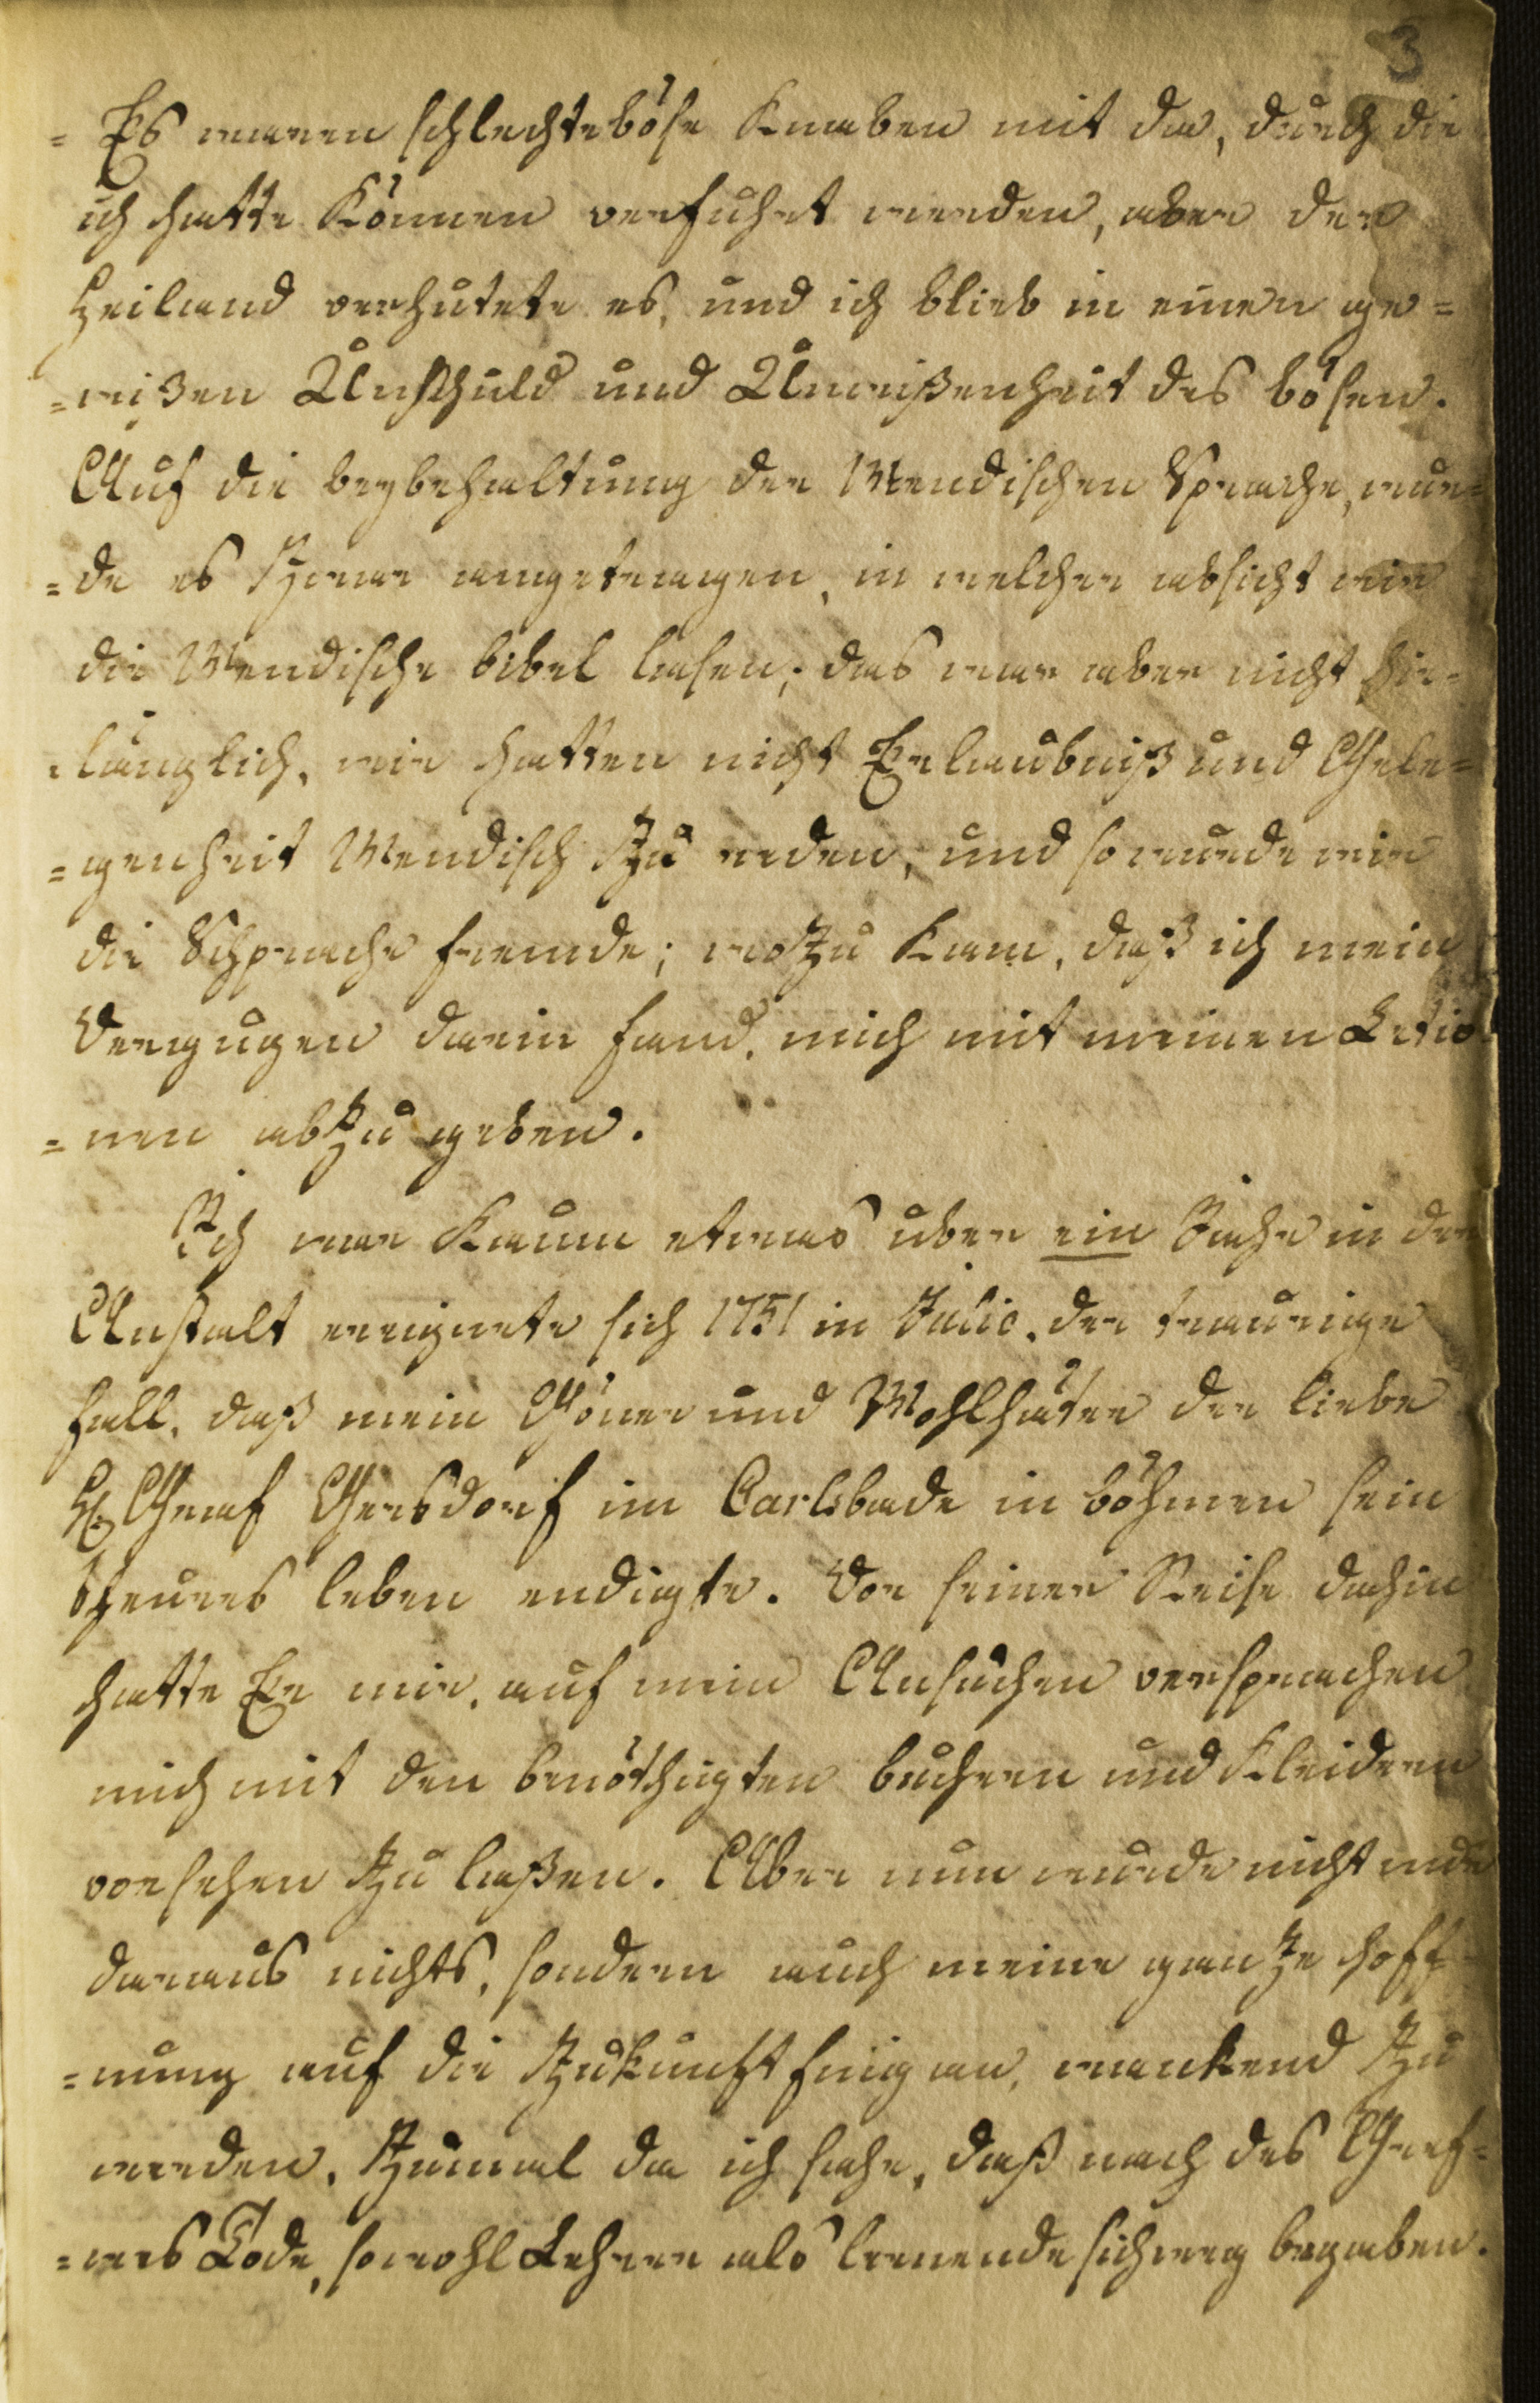 3
= Es waren schlechte böse Knaben mit da, durch die
ich hatte können verfuhrt werden, aber der
Heiland verhutete es, und ich blieb in einer ge=
=wißen Unschuld und Unwißenheit des bösen.
Auf die beybehaltung der Wendischen Sprache, wur=
=de es Zwar angetragen, in welcher absicht wir
die Wendische bibel lasen; das war aber nicht hin=
=länglich, wir hatten nicht Erlaubniß und Gele=
=genheit Wendisch Zu reden, und so wurde mir
die Schprache fremde; wozu kam, daß ich mein
Vergnugen darin fand, mich mit meinen Letio
=nen abZu geben.
Ich war kaum etwas uber ein Jahr in der
Anstalt ereignete sich 1751 in Julio. der traurige
fall, daß mein Göner und Wohlthäter der liebe
H. Graf Gersdorf im Carlsbade in böhmen sein
theures leben endigte. Vor seiner Reise dahin
hatte Er mir, auf mein Ansuchen versprachen
mich mit den benöthigten buchern und Kleidern
vorsehen Zu laßen. Aber nun wurde nicht nur
daraus nichts, sondern auch meine ganZe hoff
=nung auf die Zukunft fing an, wankend Zu
werden, Zumal da ich sahe, daß nach des Graf=
=ens Tode, sowohl Lehrer als lernende sich weg begaben.